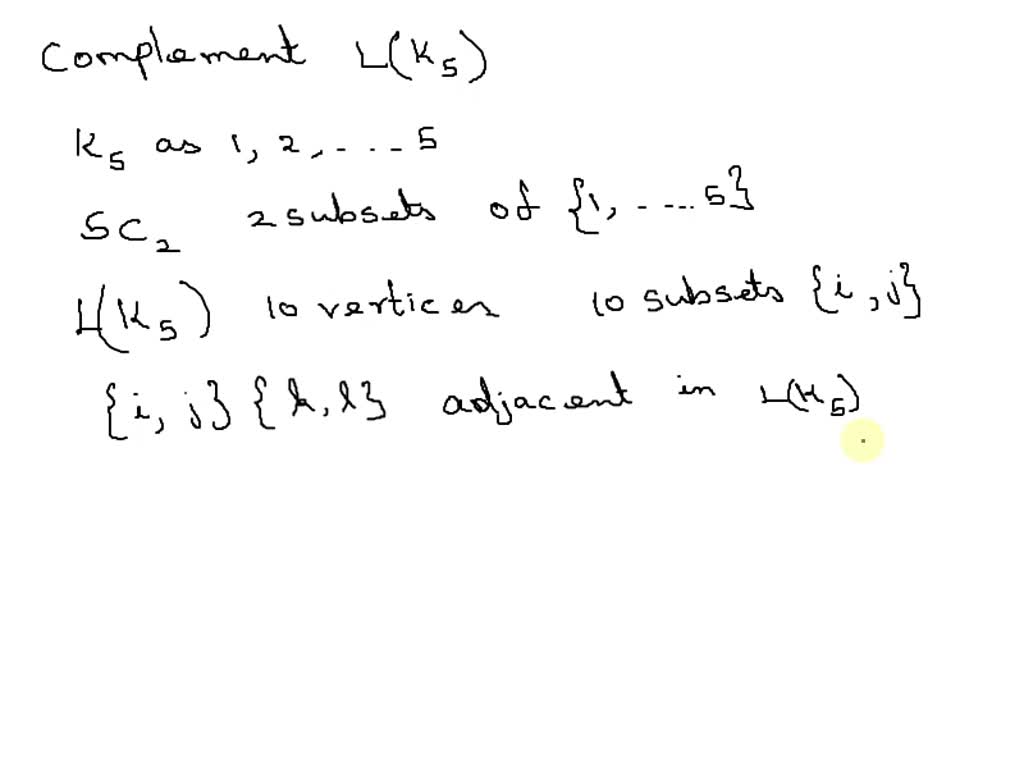 Complement L(K5)
K5 as 1, 2, ... 5
5C2 2 subsets of {1, ... 5}
L(K5) 10 vertices 10 subsets {i, j}
{i, j} {k, l} adjacent in L(K5)